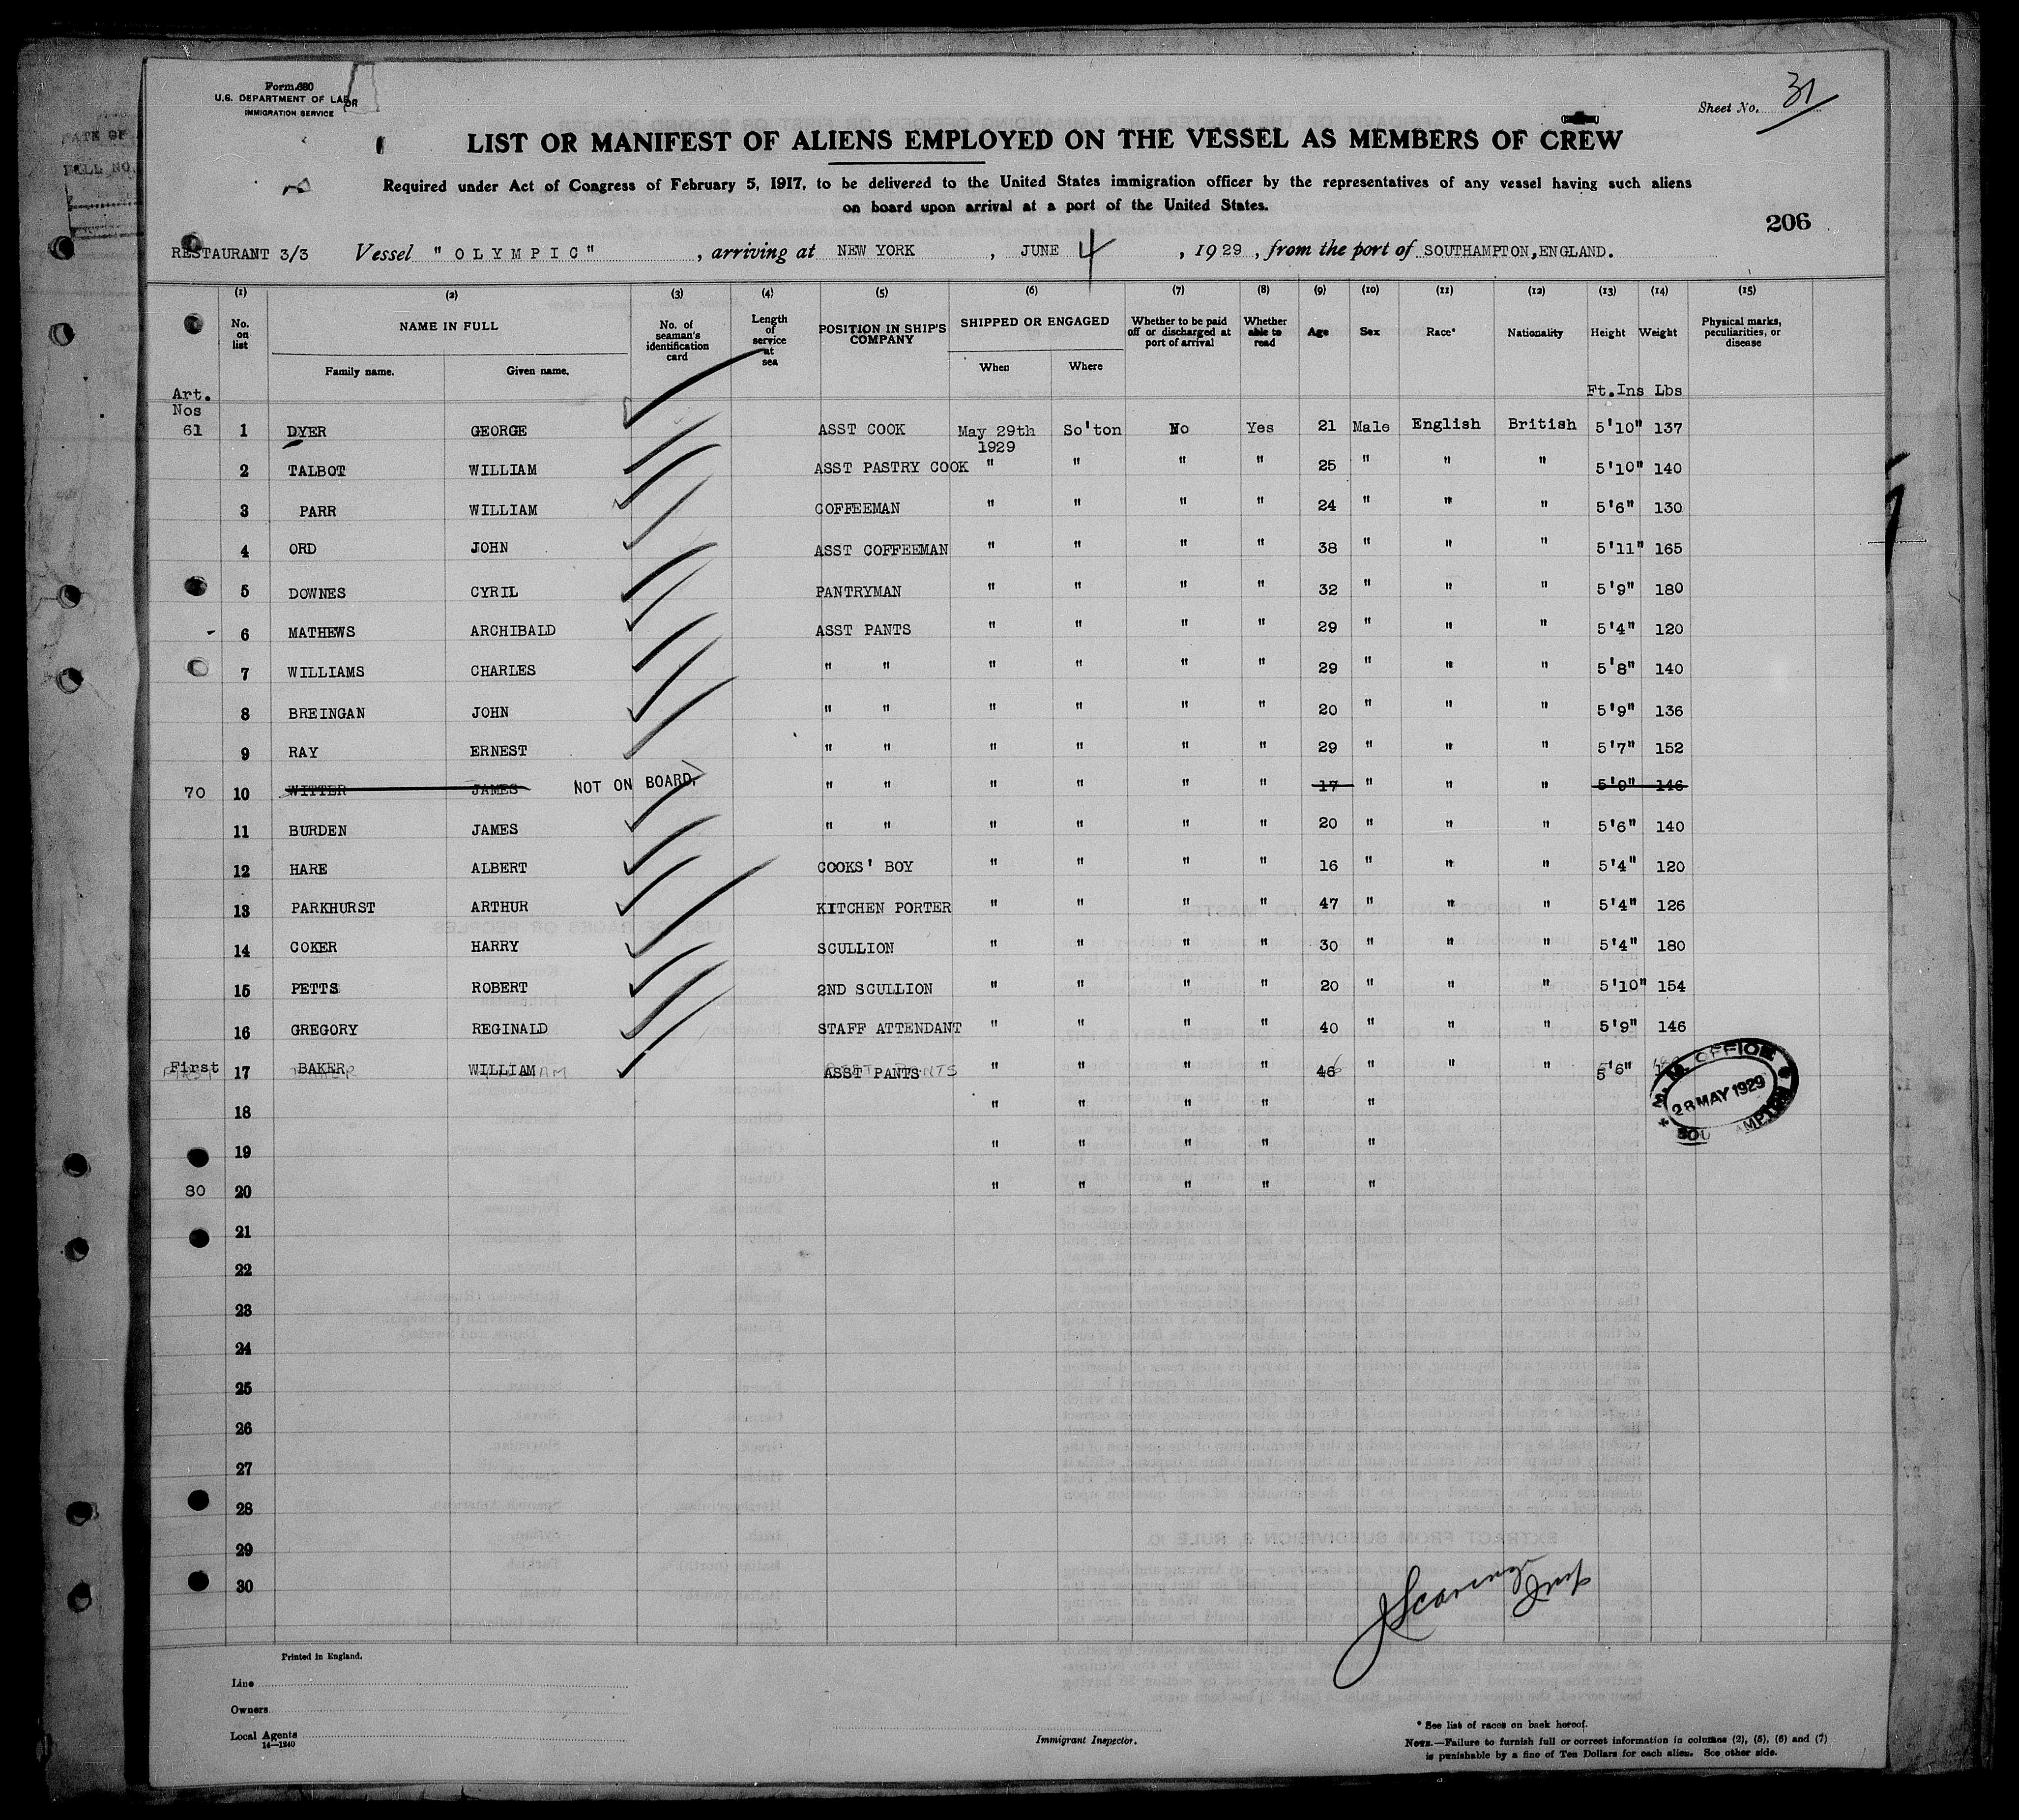 Form 680
U.S. DEPARTMENT OF LABOR
IMMIGRATION SERVICE
Sheet No. 31
LIST OR MANIFEST OF ALIENS EMPLOYED ON THE VESSEL AS MEMBERS OF CREW
Required under Act of Congress of February 5, 1917, to be delivered to the United States immigration officer by the representatives of any vessel having such aliens
on board upon arrival at a port of the United States.
206
RESTAURANT 3/3 Vessel "OLYMPIC", arriving at NEW YORK, JUNE 4, 1929, from the port of SOUTHAMPTON,ENGLAND.
(1) (2) (3) (4) (5) (6) (7) (8) (9) (10) (11) (12) (13) (14) (15)
No. on list NAME IN FULL Family name. Given name. No. of seaman's identification card Length of service at sea POSITION IN SHIP'S COMPANY SHIPPED OR ENGAGED When Where Whether to be paid off or discharged at port of arrival Whether able to read Age Sex Race* Nationality Height Weight Physical marks, peculiarities, or disease
Art. Nos Ft.Ins Lbs
61 1 DYER GEORGE ASST COOK May 29th 1929 So'ton No Yes 21 Male English British 5'10" 137
2 TALBOT WILLIAM ASST PASTRY COOK " " " " 25 " " " 5'10" 140
3 PARR WILLIAM COFFEEMAN " " " " 24 " " " 5'6" 130
4 ORD JOHN ASST COFFEEMAN " " " " 38 " " " 5'11" 165
5 DOWNES CYRIL PANTRYMAN " " " " 32 " " " 5'9" 180
6 MATHEWS ARCHIBALD ASST PANTS " " " " 29 " " " 5'4" 120
7 WILLIAMS CHARLES " " " " " " 29 " " " 5'8" 140
8 BREINGAN JOHN " " " " " " 20 " " " 5'9" 136
9 RAY ERNEST " " " " " " 29 " " " 5'7" 152
70 10 WITTER JAMES NOT ON BOARD. " " " " " " 17 " " " 5'9" 146
11 BURDEN JAMES " " " " " " 20 " " " 5'6" 140
12 HARE ALBERT COOKS' BOY " " " " 16 " " " 5'4" 120
13 PARKHURST ARTHUR KITCHEN PORTER " " " " 47 " " " 5'4" 126
14 COKER HARRY SCULLION " " " " 30 " " " 5'4" 180
15 PETTS ROBERT 2ND SCULLION " " " " 20 " " " 5'10" 154
16 GREGORY REGINALD STAFF ATTENDANT " " " " 40 " " " 5'9" 146
First 17 BAKER WILLIAM ASST PANTS " " " " 46 " " " 5'6"
18 " " " " "
19 " " " " "
80 20 " " " " "
28 MAY 1929
21
22
23
24
25
26
27
28
29
30
Printed in England.
Line
Owners
Local Agents
14—1240
Immigrant Inspector.
* See list of races on back hereof.
NOTE.—Failure to furnish full or correct information in columns (2), (5), (6) and (7)
is punishable by a fine of Ten Dollars for each alien. See other side.